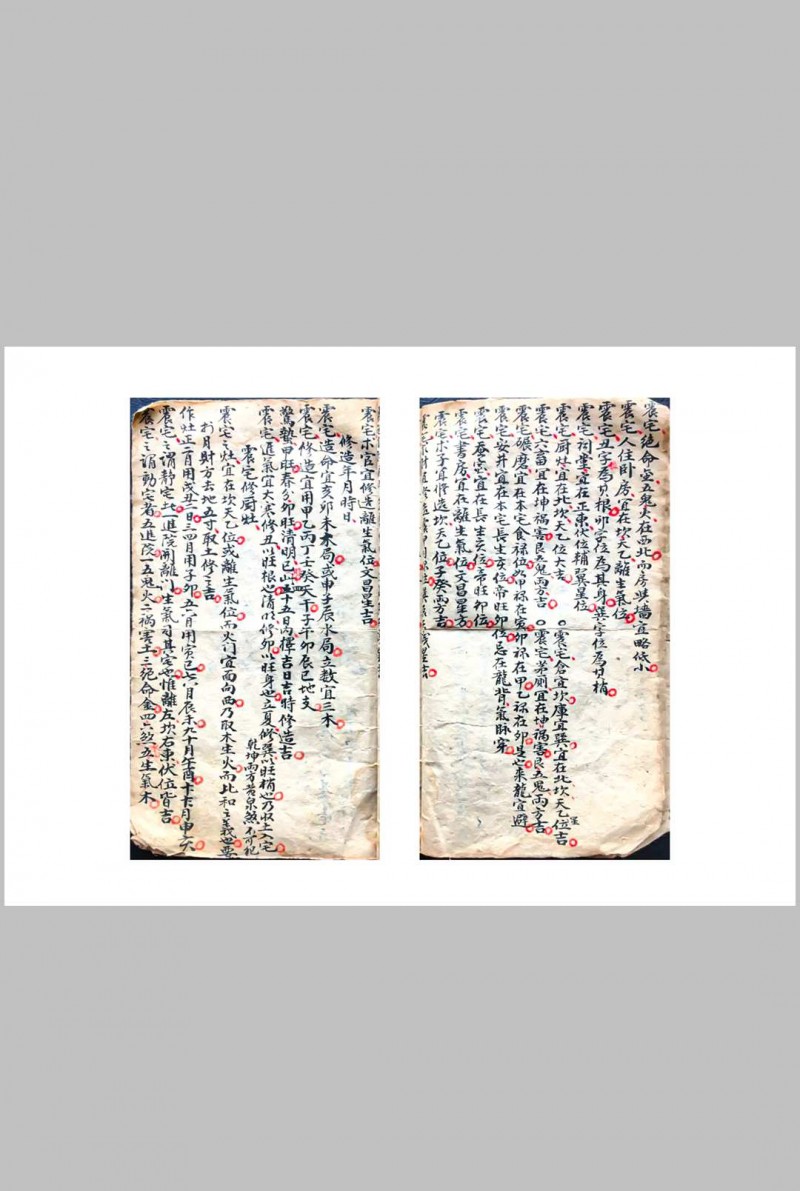 震宅絶命金五鬼火在西北而房與墻宜略低小
震宅人住卧房宜在坎天乙離生氣位
震宅丑字為貝根卯字位為其身巽字位為貝梢
震宅祠堂宜在正東伏位輔弼星位
震宅厨灶宜在北坎天乙位大吉 震宅倉宜坎庫宜巽宜在北坎天乙位吉
震宅六畜宜在坤禍害艮五鬼兩方吉 震宅茅厠宜在坤禍害艮五鬼兩方吉
震宅碾磨宜在本宅食禄位如甲禄在寅卯禄在甲乙禄在卯是也来龍宜避
震宅安井宜在本宅長生亥位帝旺卯位忌在龍背氣脉穿
震宅蚕室宜在長生亥位帝旺卯位
震宅書房宜在離生氣位文昌星方
震宅求子宜修造坎天乙位子癸兩方吉
震宅求官宜修造離生氣位文昌星吉
修造年月時日
震宅造命宜亥卯未木局或申子辰水局立数宜三木
震宅修造宜用甲乙丙丁壬癸天干子午卯辰巳地支
驚蟄甲旺春分卯旺清明巳上五十五日内擇吉日吉時修造吉
震宅進氣宜大寒修丑以旺根也清明修卯以旺身也立夏修巽以旺梢也乃収土入宅
震宅修厨灶 乾坤兩方若泉煞不可犯
震宅之灶宜在坎天乙位或離生氣位而火门宜面向西乃取木生火而比和之義也要
於月財方去地五寸取土修之吉
作灶正二月用戌丑三四月用子卯五六月用寅巳七八月辰未九十月午酉十一十二月申亥
震宅之謂静宅土一進院開離门生氣司其宅也惟離左坎右東伏位皆吉
震宅之謂動宅者五進院一五鬼火二禍害土三絶命金四六煞五生氣木